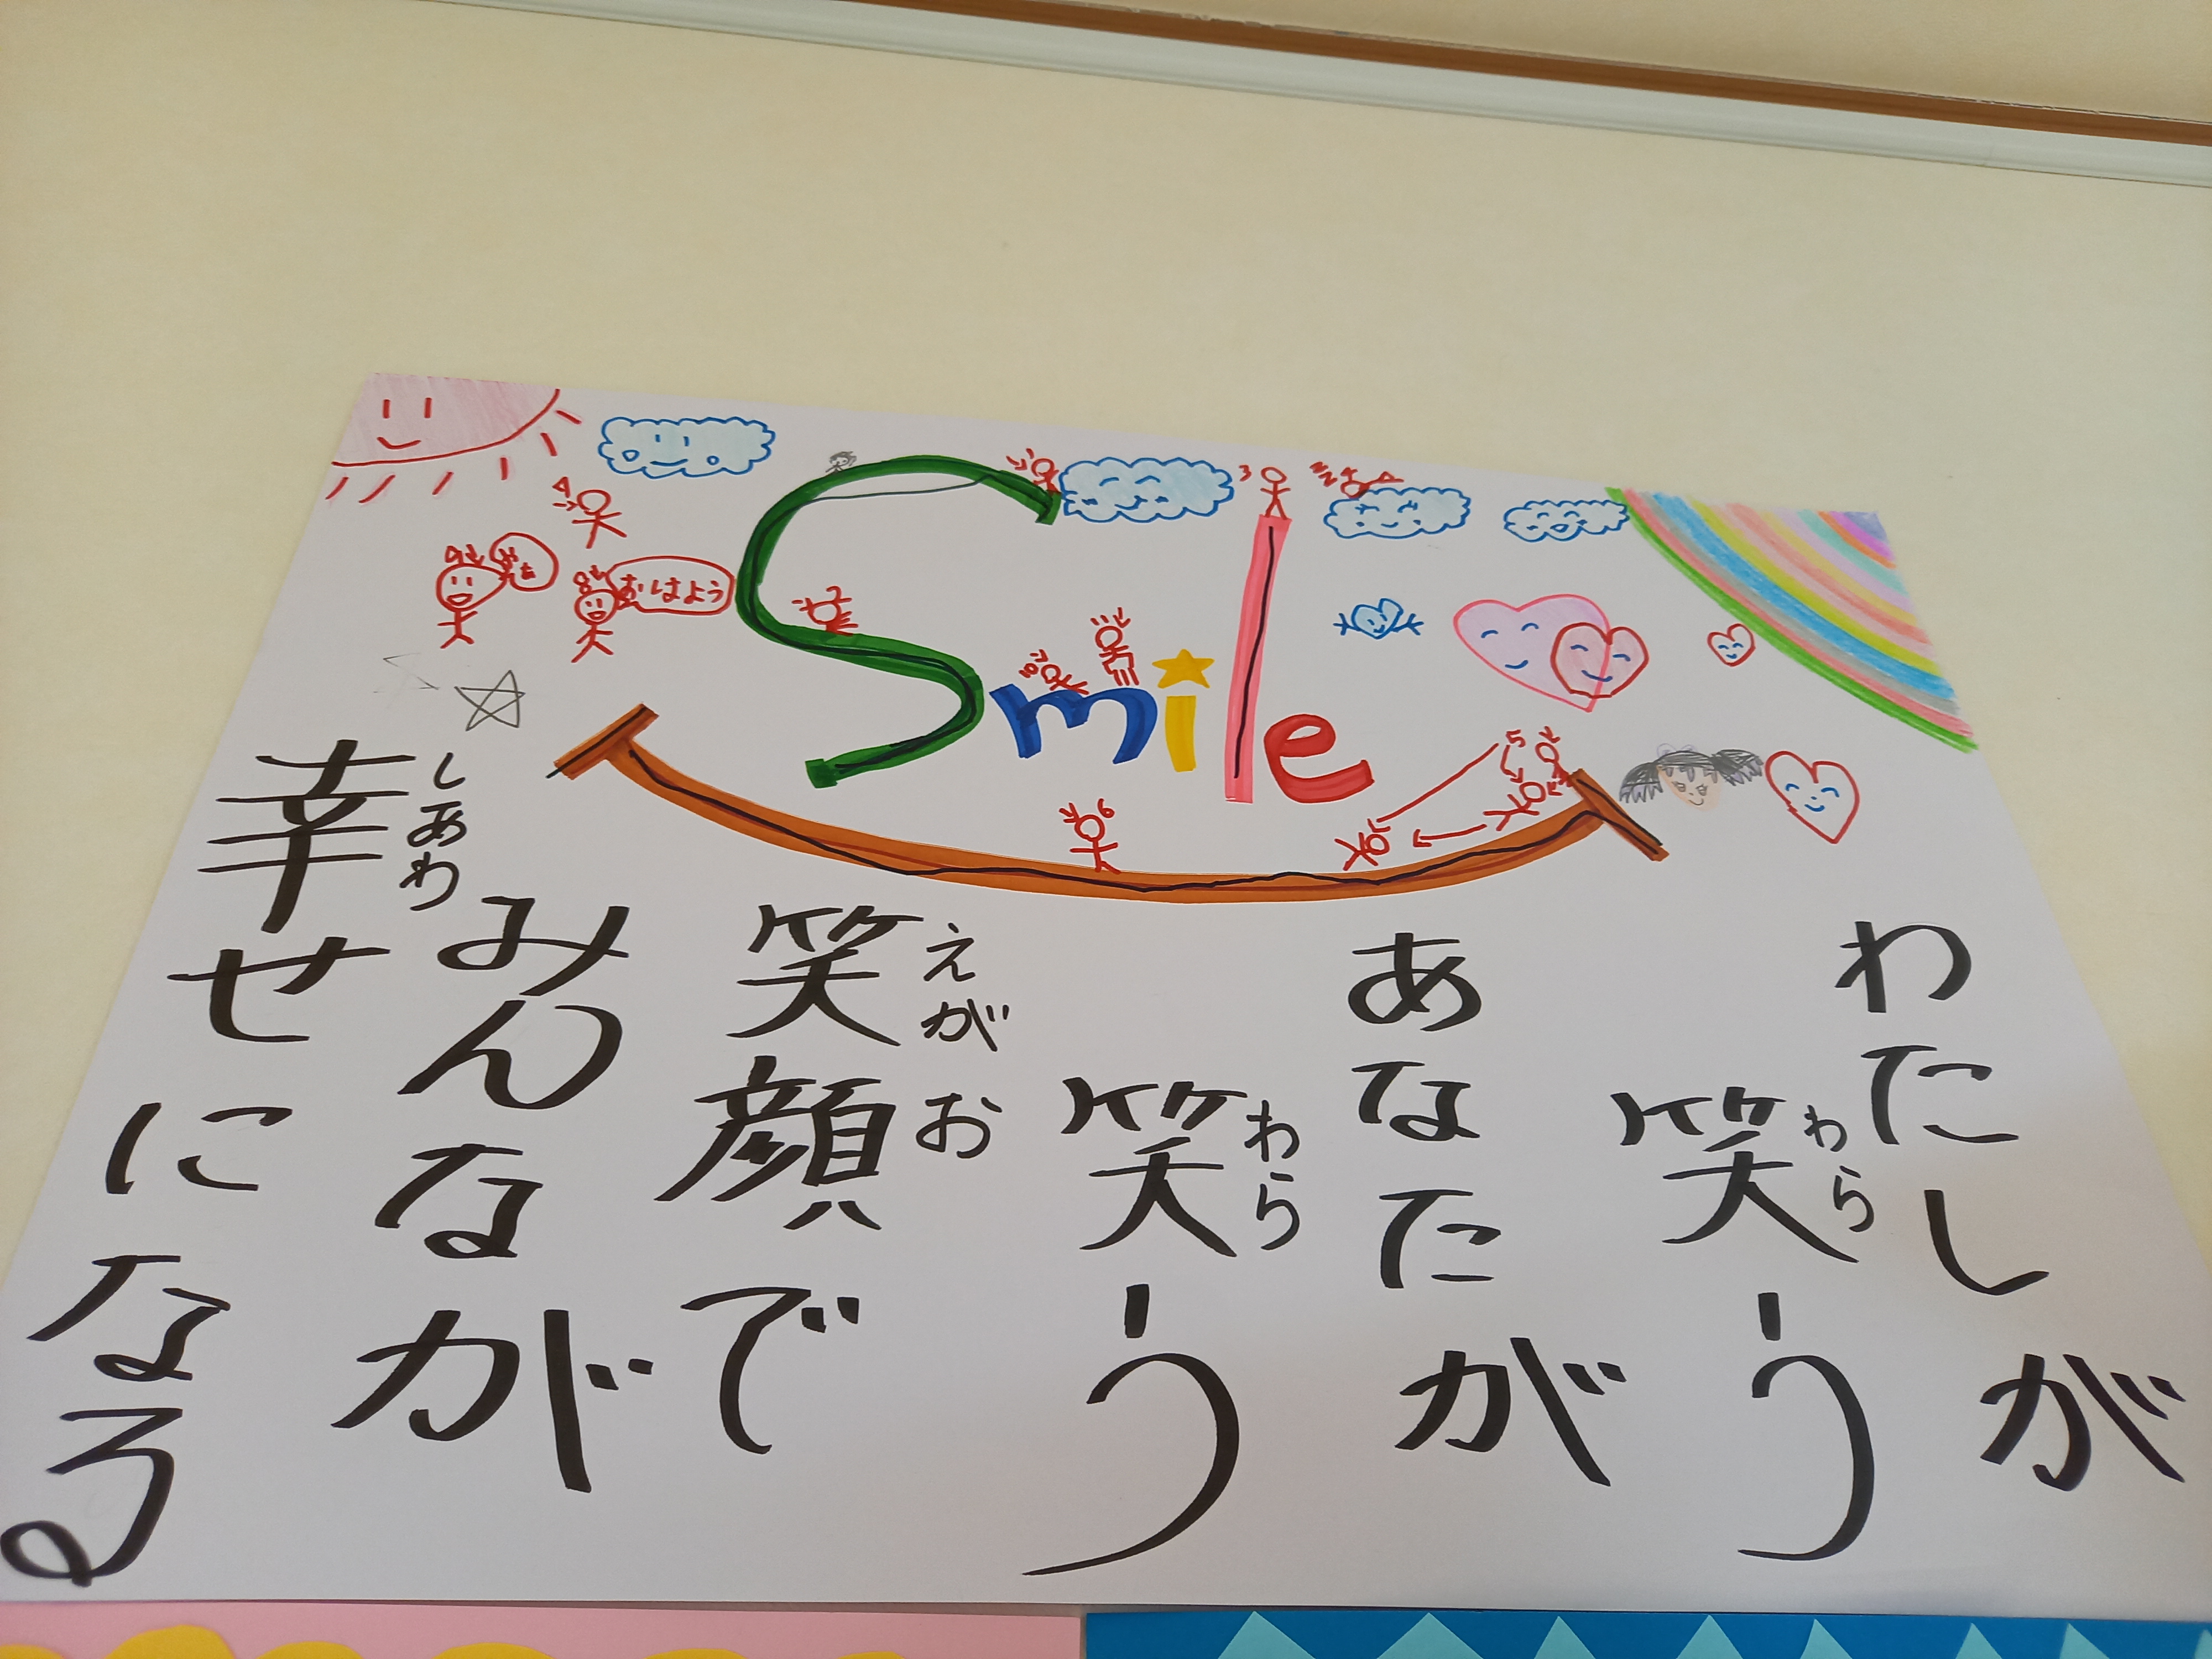 Smile
おはよう
わたしが
笑う
わら
あなたが
笑う
わら
笑顔で
えがお
みんなが
幸せになる
しあわ